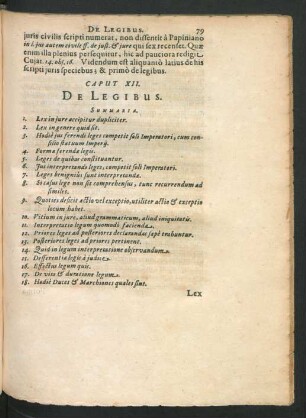 DE LEGIBUS. 79
juris civilis scripti numerat, non dissentit à Papiniano
in l. jus autem civile ff. de just. & jure qui sex recenset. Quæ
enim illa plenius persequitur, hic ad pauciora redigit.
Cujat. 14. obs. 16. Videndum est aliquantò latius de his
scripti juris speciebus; & primò de legibus.
CAPUT XII.
DE LEGIBUS.
SUMMARIA.
1. Lex in jure accipitur dupliciter.
2. Lex in genere quid sit.
3. Hodiè jus ferendi leges competit soli Imperatori, cum con-
silio statuum Imperij.
4. Forma ferendæ legis.
5. Leges de quibus constituantur.
6. Jus interpretandi leges, competit soli Imperatori.
7. Leges benignius sunt interpretandæ.
8. Si casus lege non sit comprehensus, tunc recurrendum ad
similes.
9. Quoties deficit actio vel exceptio, utiliter actio & exceptio
locum habet.
10. Vitium in jure, aliud grammaticum, aliud iniquitatis.
11. Interpretatio legum quomodò facienda.
12. Priores leges ad posteriores declarandas sæpè trahuntur.
13. Posteriores leges ad priores pertinent.
14. Quid in legum interpretatione observandum.
15. Differentia legis à judice.
16. Effectus legum quis.
17. De vita & duratione legum.
18. Hodiè Duces & Marchiones quales sint.
Lex